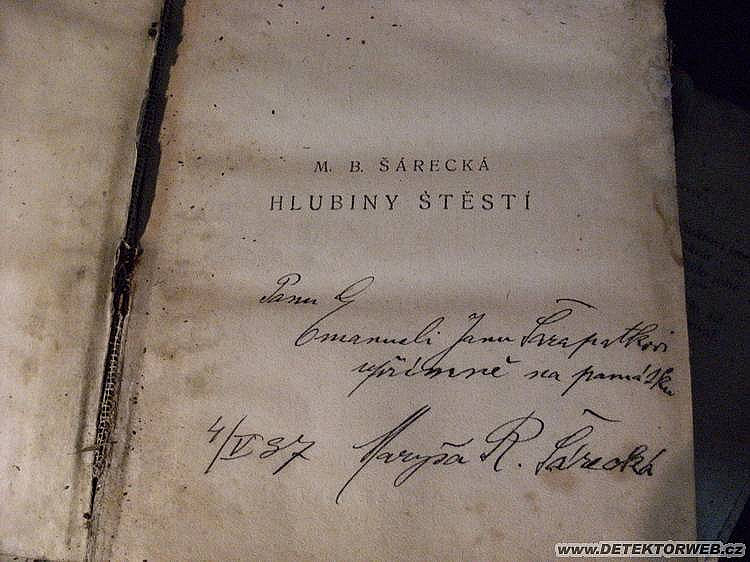 M. B. ŠÁRECKÁ
HLUBINY ŠTĚSTÍ
Panu
Emanueli Janu Šarapatkovi
upřímně na památku
4/V 37 Maryša R. Šárecká
www.DETEKTORWEB.cz